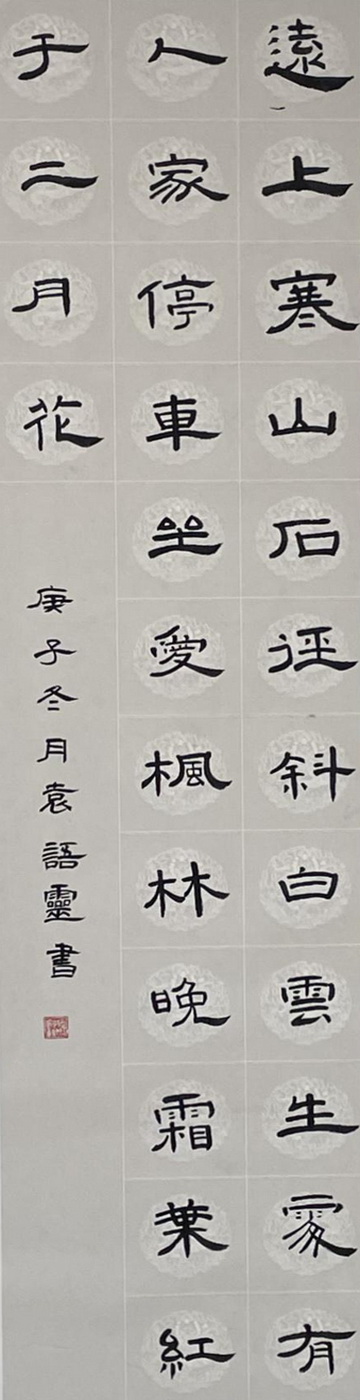 遠上寒山石徑斜白雲生處有
人家停車坐愛楓林晚霜葉紅
于二月花
庚子冬月袁語靈書